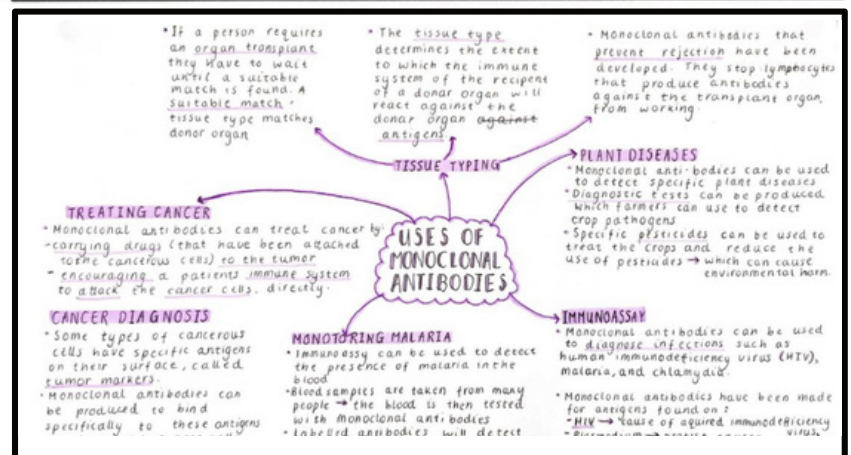 • If a person requires
an organ transplant
they have to wait
until a suitable
match is found. A
suitable match -
tissue type matches
donor organ
• The tissue type
determines the extent
to which the immune
system of the recipent
of a donor organ will
react against the
donor organ against
antigens
• Monoclonal antibodies that
prevent rejection have been
developed. They stop lymphocytes
that produce antibodies
against the transplant organ,
from working.
TISSUE TYPING
PLANT DISEASES
• Monoclonal anti-bodies can be used
to detect specific plant diseases
• Diagnostic tests can be produced
which farmers can use to detect
crop pathogens
• Specific pesticides can be used to
treat the crops and reduce the
use of pestiades → which can cause
environmental harm.
TREATING CANCER
• Monoclonal antibodies can treat cancer by:
- carrying drugs (that have been attached
to the cancerous cells) to the tumor
- encouraging a patients immune system
to attack the cancer cells, directly.
USES OF
MONOCLONAL
ANTIBODIES
CANCER DIAGNOSIS
• Some types of cancerous
cells have specific antigens
on their surface, called
tumor markers.
• Monoclonal antibodies can
be produced to bind
specifically to these antigens
MONOTORING MALARIA
• Immunoassy can be used to detect
the presence of malaria in the
blood
• Blood samples are taken from many
people → the blood is then tested
with monoclonal antibodies
• Labelled antibodies will detect
IMMUNOASSAY
• Monoclonal antibodies can be used
to diagnose infections such as
human immunodeficiency virus (HIV),
malaria, and chlamydia.
• Monoclonal antibodies have been made
for antigens found on:
- HIV → cause of aquired immunodeficiency
virus.